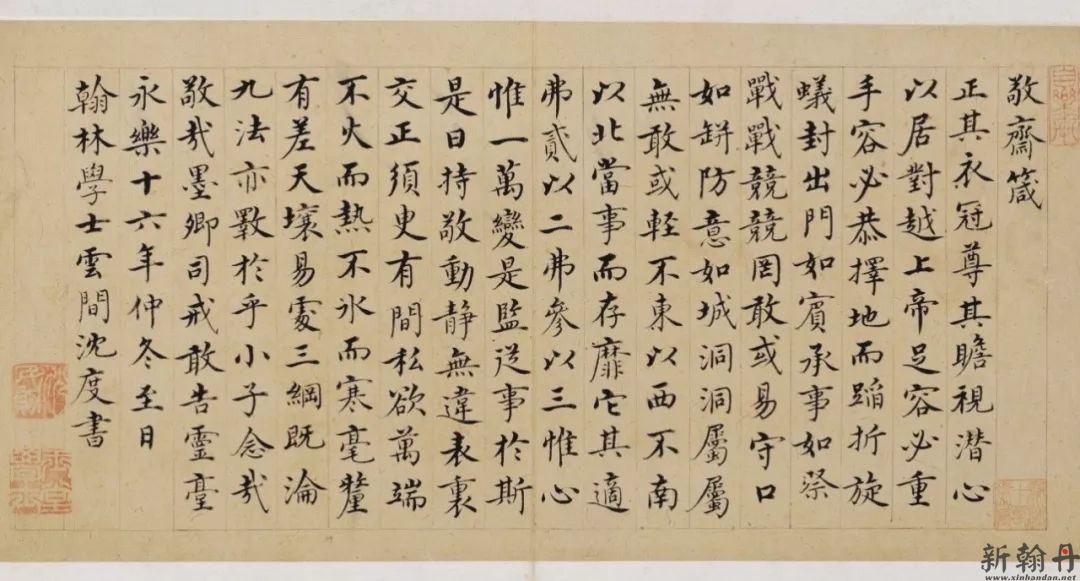 敬齋箴
正其衣冠尊其瞻視潛心
以居對越上帝足容必重
手容必恭擇地而蹈折旋
蟻封出門如賓承事如祭
戰戰兢兢罔敢或易守口
如缾防意如城洞洞屬屬
無敢或輕不東以西不南
以北當事而存靡它其適
弗貳以二弗參以三惟心
惟一萬變是監從事於斯
是曰持敬動静無違表裏
交正須臾有間私欲萬端
不火而熱不氷而寒毫釐
有差天壤易處三綱既淪
九法亦斁於乎小子念哉
敬哉墨卿司戒敢告靈臺
永樂十六年仲冬至日
翰林學士雲間沈度書
新翰丹
www.xinhandan.net